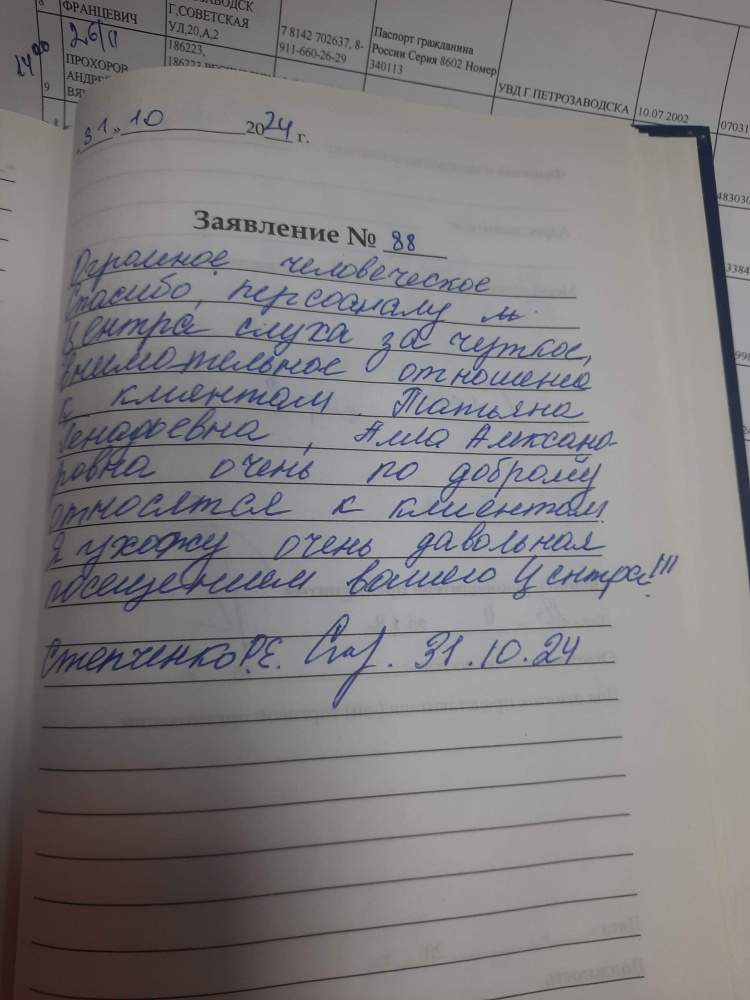 ФРАНЦЕВИЧ
Г,СОВЕТСКАЯ
УЛ,20,А,2
7 8142 702637, 8-
911-660-26-29
Паспорт гражданина
России Серия 8602 Номер
340113
УВД Г.ПЕТРОЗАВОДСКА
10.07.2002
14⁰⁰
26/11
9
ПРОХОРОВ
186223,
"31" 10 2024 г.
Заявление № 88
Огромное человеческое
спасибо, персоаналу
Центра слуха за чуткое,
внимательное отношение
к клиентам. Татьяна
Генадьевна, Алла Алксанд
ровна очень по доброму
относятся к клиентам.
Я ухожу очень давольная
посещением вашего Центра!!!
Степченко Р.Е. 31.10.24